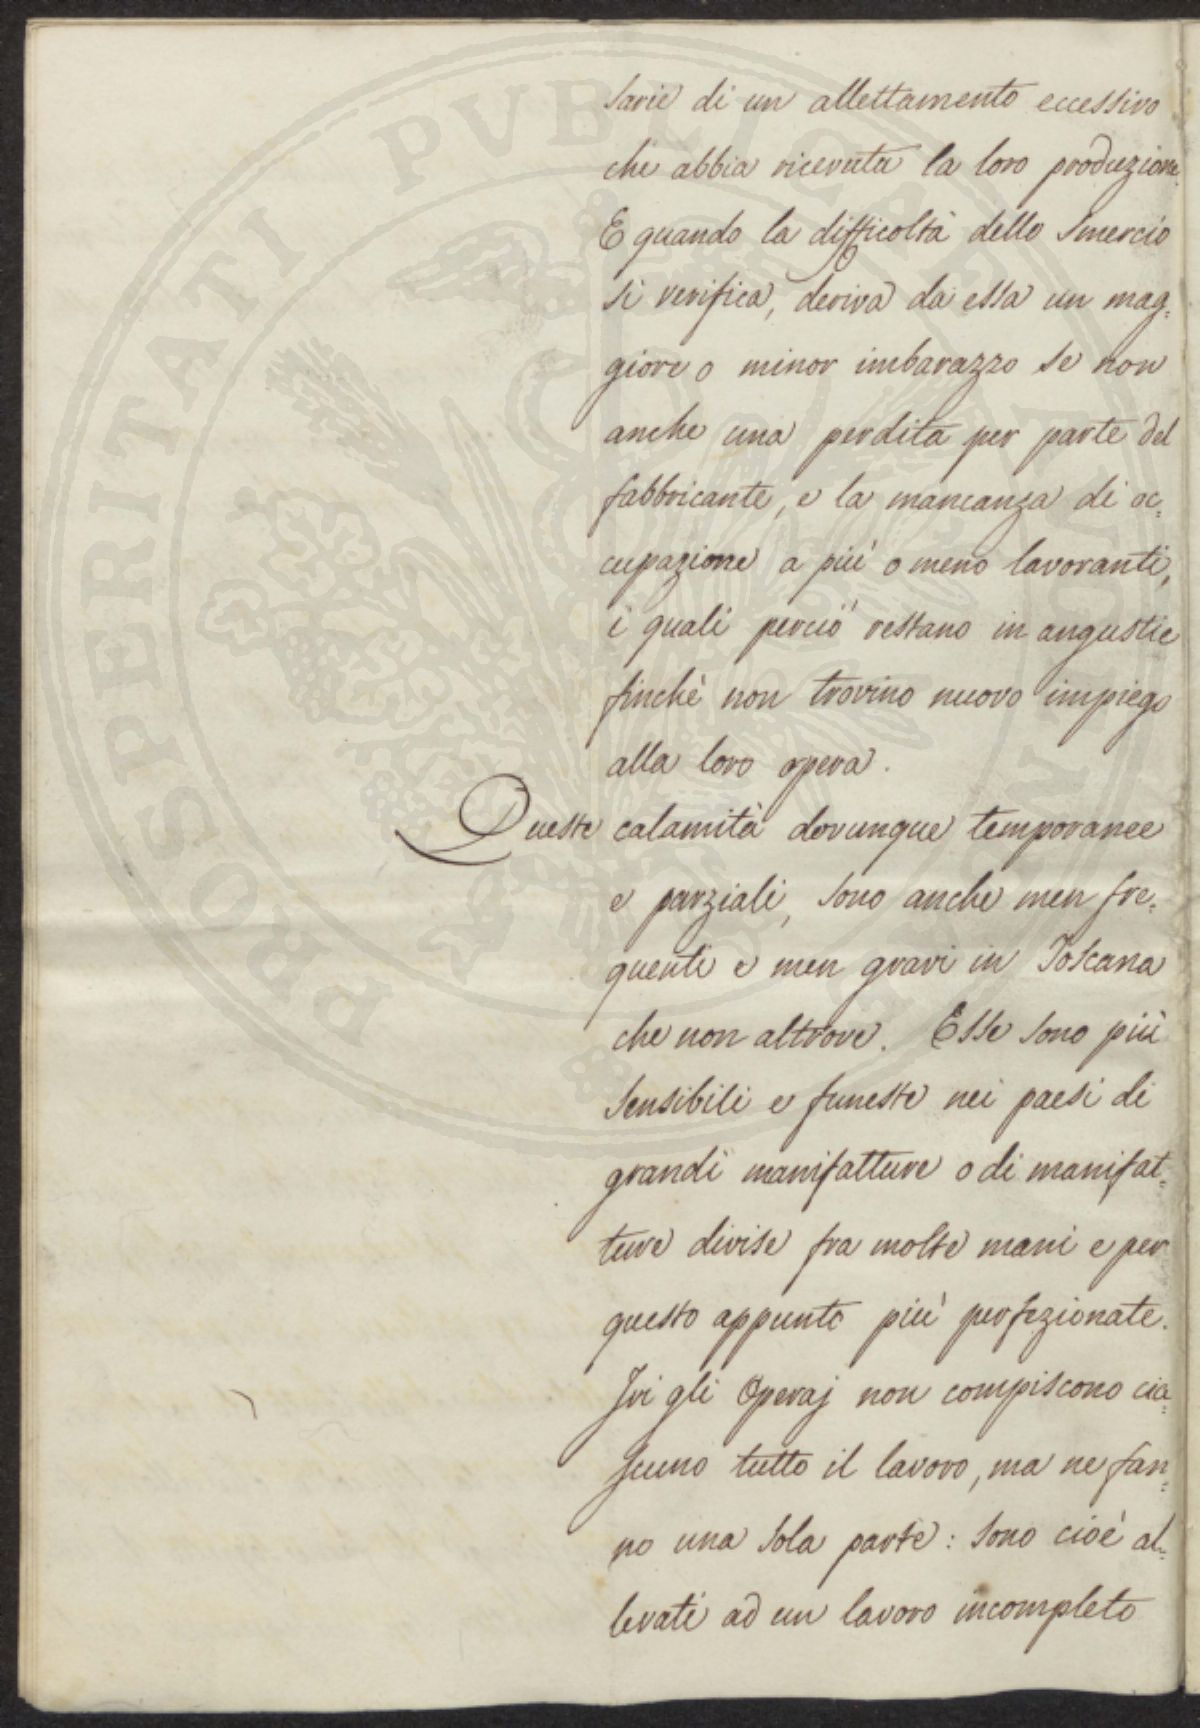 sarie di un allettamento eccessivo
che abbia ricevuta la loro produzione.
E quando la difficoltà dello smercio
si verifica, deriva da essa un mag=
giore o minor imbarazzo se non
anche una perdita per parte del
fabbricante, e la mancanza di oc=
cupazione a più o meno lavoranti,
i quali perciò restano in angustie
finchè non trovino nuovo impiego
alla loro opera.
Queste calamità dovunque temporanee
e parziali, sono anche men fre=
quenti e men gravi in Toscana
che non altrove. Esse sono più
sensibili e funeste nei paesi di
grandi manifatture o di manifat=
ture divise fra molte mani e per
questo appunto più perfezionate.
Ivi gli Operaj non compiscono cia=
scuno tutto il lavoro, ma ne fan=
no una sola parte: sono cioè al=
levati ad un lavoro incompleto
PROSPERITATI PVBLICAE